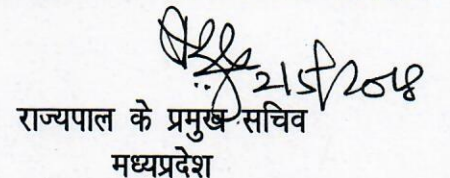 2/5/2018
राज्यपाल के प्रमुख सचिव
मध्यप्रदेश